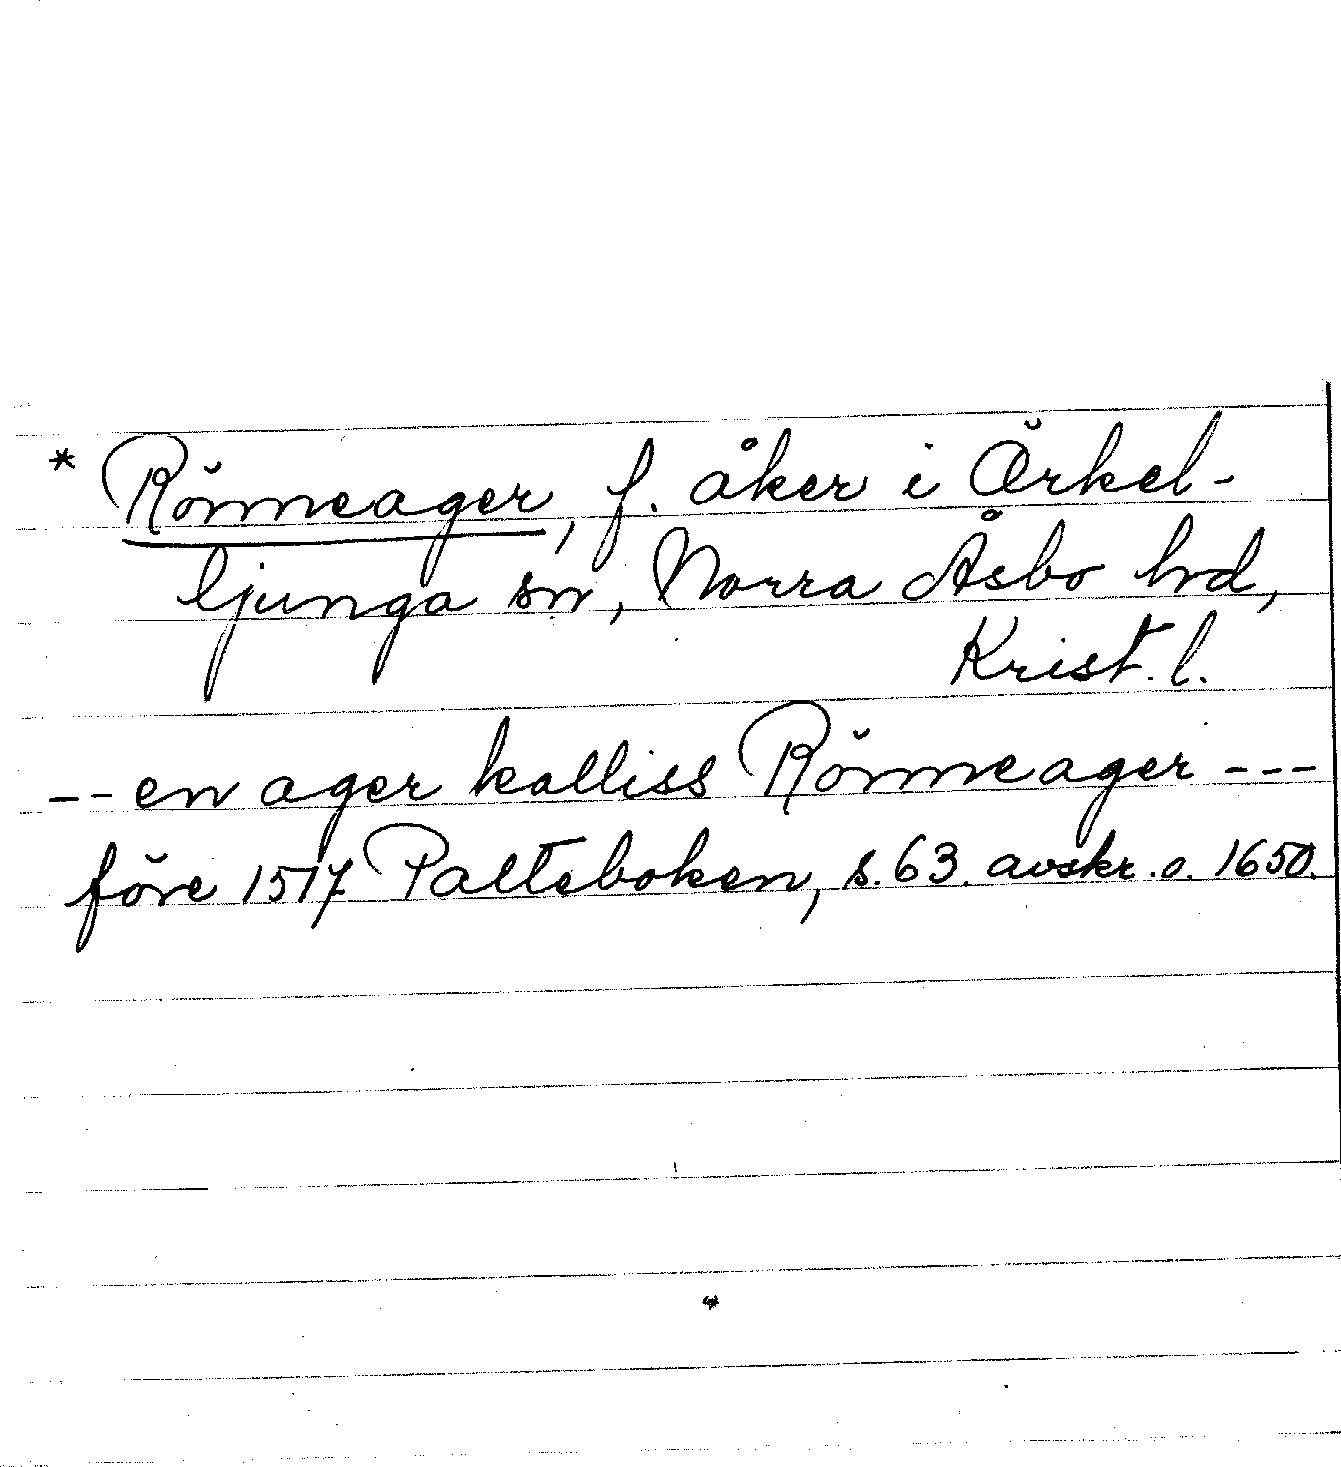 * Rönneager, f. åker i Örkel-
ljunga sn, Norra Åsbo hd,
Krist. l.
-- en ager kalliss Rönneager ---
före 1517 Palteboken, s. 63. avskr. o. 1650.